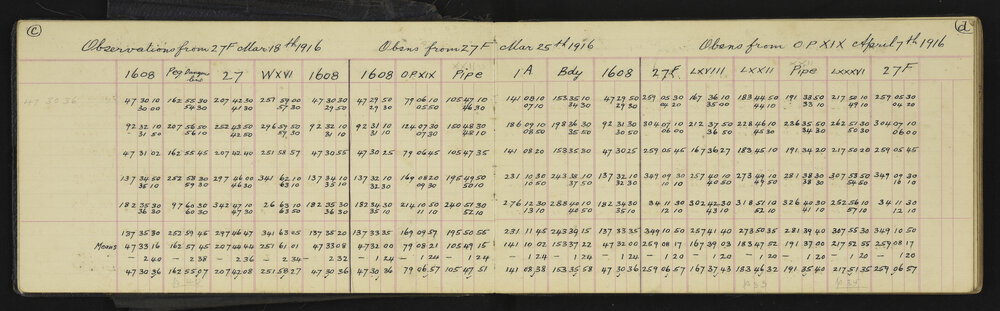 C d
Observations from 27F Mar 18th 1916 Obsns from 27F Mar 25th 1916 Obsns from OPXIX April 7th 1916
1608 Peg 27 WXVI 1608 1608 OPXIX Pipe 1A Bdy 1608 27F LXVIII LXXII Pipe LXXXVI 27F
47 30 10 162 55 30 207 42 30 257 59 00 47 30 30 47 29 50 79 06 10 105 47 10 141 08 10 153 35 10 47 29 50 259 05 30 167 36 10 183 44 50 191 33 50 217 50 10 259 05 30
30 00 54 30 41 30 57 30 29 50 29 30 05 50 46 30 07 10 34 30 29 30 04 20 35 00 44 10 33 10 49 10 04 20
92 32 10 207 56 50 252 43 50 296 59 50 92 32 10 92 31 10 124 07 30 150 48 30 186 09 10 198 36 30 92 31 30 304 07 10 212 37 50 228 46 10 236 35 50 262 51 30 304 07 10
31 50 56 10 42 50 57 30 31 10 31 10 07 30 48 10 08 50 35 50 30 50 06 00 36 50 45 30 34 30 50 30 06 00
47 31 02 162 55 45 207 42 40 251 58 57 47 30 55 47 30 25 79 06 45 105 47 35 141 08 20 153 35 30 47 30 25 259 05 45 167 36 27 183 45 10 191 34 20 217 50 20 259 05 45
137 34 50 252 58 30 297 46 00 341 62 10 137 34 10 137 32 10 169 08 20 195 49 50 231 10 30 243 38 10 137 32 30 349 09 30 257 40 10 273 49 10 281 38 30 307 53 50 349 09 30
35 10 59 30 46 30 63 10 35 10 32 30 09 30 50 10 10 50 37 50 32 10 10 10 40 50 49 50 38 30 54 50 10 10
182 35 30 97 60 30 342 47 10 26 63 10 182 35 30 182 34 30 214 10 50 240 51 30 276 12 30 288 40 10 182 34 30 34 11 30 302 42 30 318 51 10 326 40 30 252 56 10 34 11 30
36 30 60 30 47 30 63 50 36 30 35 10 11 10 52 10 13 10 40 50 35 10 12 10 43 10 52 10 41 10 57 10 12 10
137 35 30 252 59 45 297 46 47 341 63 05 137 35 20 137 33 35 169 09 57 195 50 55 231 11 45 243 39 15 137 33 35 349 10 50 257 41 40 273 50 35 281 39 40 307 55 30 349 10 50
Means 47 33 16 162 57 45 207 44 44 251 61 01 47 33 08 47 32 00 79 08 21 105 49 15 141 10 02 153 37 22 47 32 00 259 08 17 167 39 03 183 47 52 191 37 00 217 52 55 259 08 17
- 2 40 - 2 38 - 2 36 - 2 34 - 2 32 - 1 24 - 1 24 - 1 24 - 1 24 - 1 24 - 1 24 - 1 20 - 1 20 - 1 20 - 1 20 - 1 20 - 1 20
47 30 36 162 55 07 207 42 08 251 58 27 47 30 36 47 30 36 79 06 57 105 47 51 141 08 38 153 35 58 47 30 36 259 06 57 167 37 43 183 46 32 191 35 40 217 51 35 259 06 57